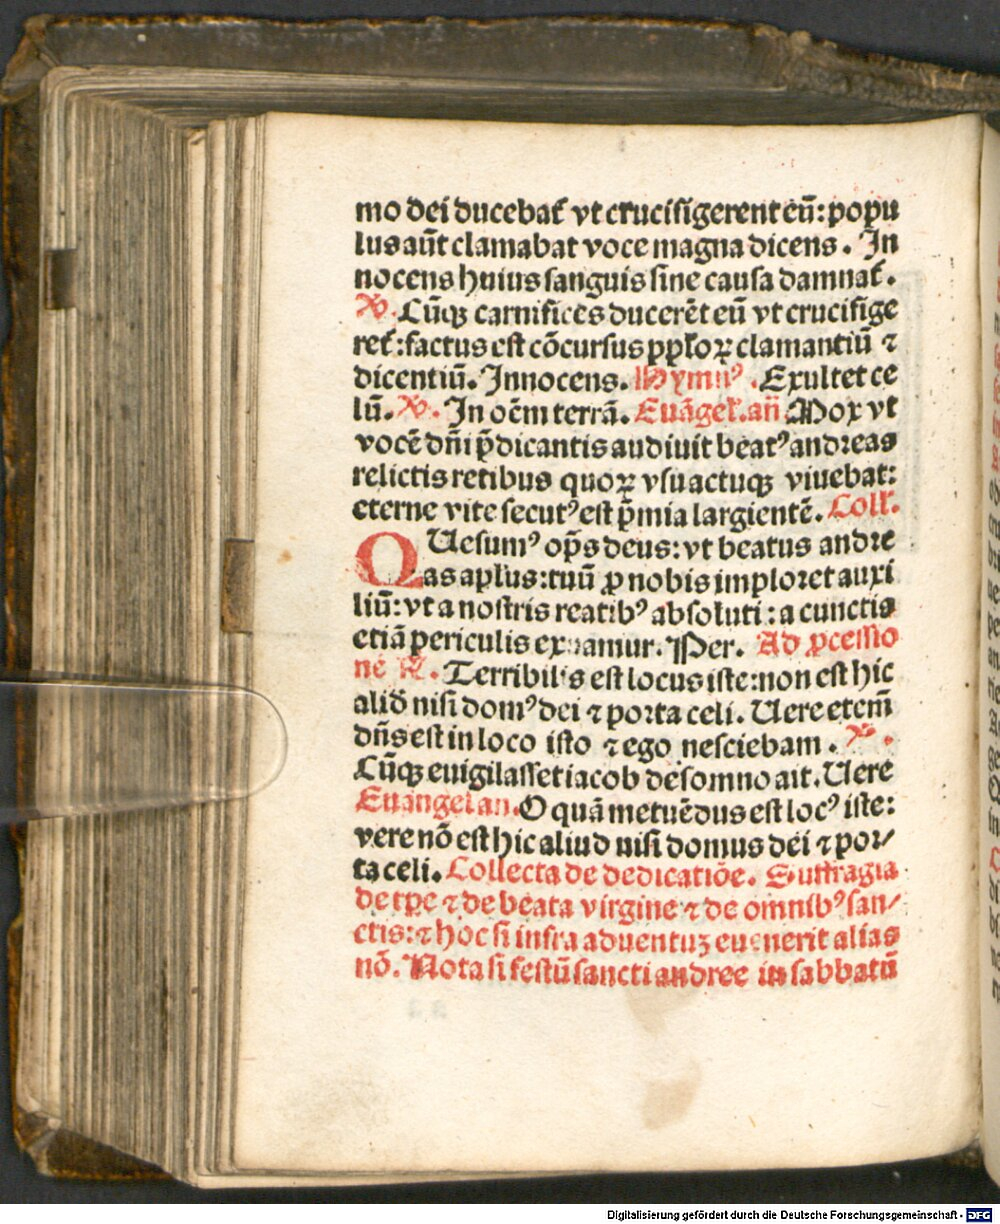 mo dei ducebat̉ vt crucifigerent eū: popu
lus aūt clamabat voce magna dicens. In
nocens huius sanguis sine causa damnat̉.
℣. Cūqꝫ carnifices ducerēt eū vt crucifige
ret̉: factus est cōcursus ppl̉oꝝ clamantiū ⁊
dicentiū. Innocens. Hymnꝰ. Exultet ce
lū. ℣. In oēm terrā. Euāgel̉. an̄ Mox vt
vocē dn̄i p̄dicantis audiuit beatꝰ andreas
relictis retibus quoꝝ vsu actuqꝫ viuebat:
eterne vite secutꝰ est p̄mia largientē. Coll̉.
QUesumꝰ op̄s deus: vt beatus andre
as apl̄us: tuū ꝓ nobis imploret auxi
liū: vt a nostris reatibꝰ absoluti: a cunctis
etiā periculis exuamur. Per. Ad ꝓcessio
nē ℟. Terribilis est locus iste: non est hic
aliđ nisi domꝰ dei ⁊ porta celi. Uere etem̄
dn̄s est in loco isto ⁊ ego nesciebam. ℣.
Cūqꝫ euigilasset iacob de somno ait. Uere
Euangel an. O quā metuēdus est locꝰ iste:
vere nō est hic aliud nisi domus dei ⁊ por/
ta celi. Collecta de dedicatiōe. Suffragia
de tp̄e ⁊ de beata virgine ⁊ de omnibꝰ san/
ctis: ⁊ hoc si infra aduentuꝫ euenerit alias
nō. Nota si festū sancti andree in sabbatū
Digitalisierung gefördert durch die Deutsche Forschungsgemeinschaft - DFG